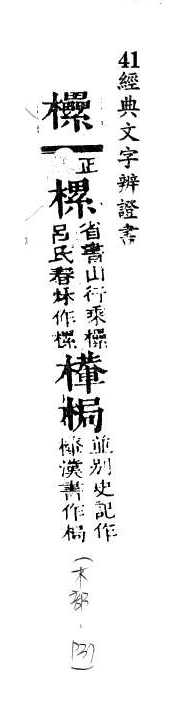 41經典文字辨證書
欙
正
樏
省書山行乘欙
呂氏春秋作樏
檋
梮
並別史記作
檋漢書作梮
(木部.